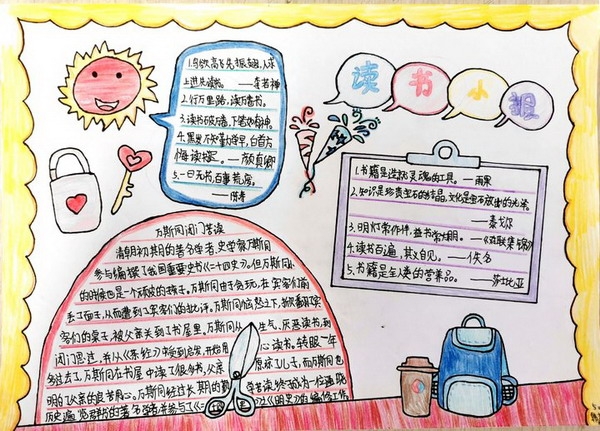 读书小报
1.鸟欲高飞先振翅,人求
上进先读书。 ——李苦禅
2.行万里路,读万卷书。
3.读书破万卷,下笔如有神。
4.黑发不知勤学早,白首方
悔读书迟。——颜真卿
5.一日无书,百事荒废。
——陈寿
1.书籍是造就灵魂的工具。——雨果
2.知识是珍贵宝石的结晶,文化是宝石放出的光泽。
——泰戈尔
3.明灯常作伴,益书常为朋。——
4.读书百遍,其义自见。——佚名
5.书籍是全人类的营养品。——莎士比亚
万斯同闭门苦读
清朝初期的著名学者、史学家万斯同
参与编撰了我国重要史书《二十四史》。但万斯同小
的时候也是一个顽皮的孩子。万斯同由于贪玩,在宾客们面前
丢了面子,从而遭到了宾客们的批评。万斯同恼怒之下,掀翻了宾
客们的桌子,被父亲关到了书屋里。万斯同从生气、厌恶读书,到
闭门思过,并从《茶经》中受到启发,开始用心读书。转眼一年
多过去了,万斯同在书屋中读了很多书,父亲原谅了儿子,而万斯同也
明白了父亲的良苦用心。万斯同经过长期的勤学苦读,终于成为一位通晓
历史遍览群书的著名学者,并参与了《二十史》之《明史》的编修工作。